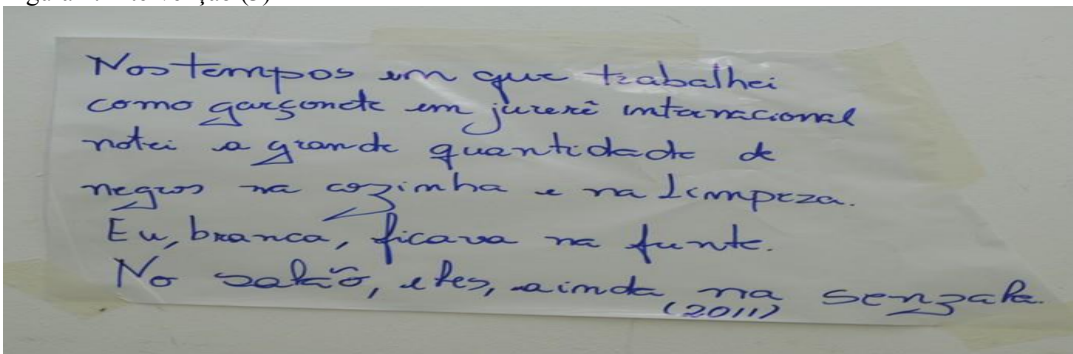 Nos tempos em que trabalhei
como garçonete em jurerê internacional
notei a grande quantidade de
negros na cozinha e na limpeza.
Eu, branca, ficava na frente.
No salão, eles, ainda, na senzala.
(2011)